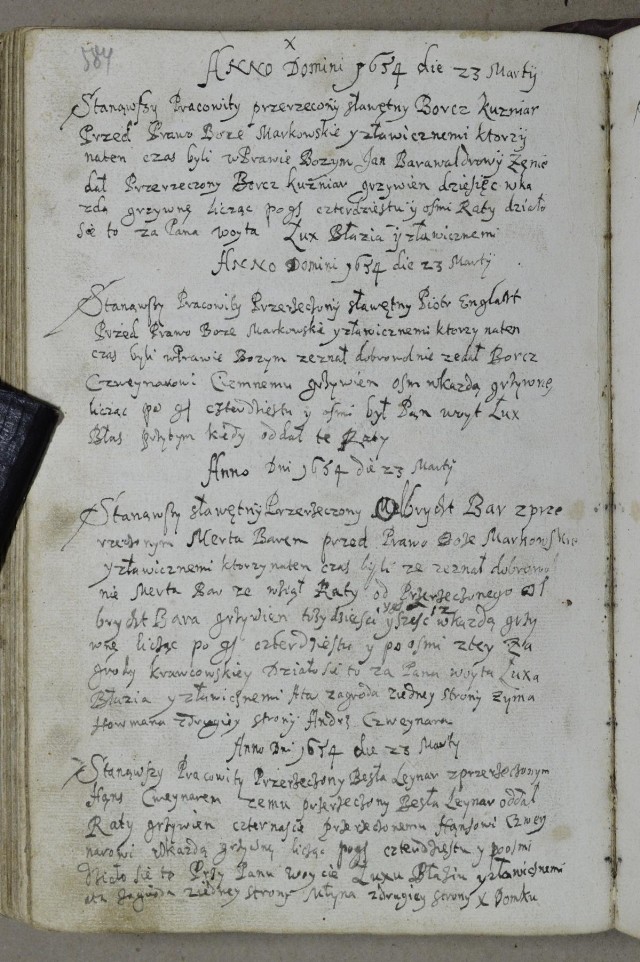 584
x
Anno Domini 1654 die 23 Martij
Stanąwszy Pracowity przerzeconÿ sławętny Borcz Kuzniar
Przed Prawo Boze Markowskie y zławicznemi ktorzÿ
naten czas byli wPrawie Bozym Jan
dał Przerzeczony Borcz Kuzniar grzywien dziesięc wka
zdą grzywnę licząc po gs czterdziestu y osmi Raty działo
się to za Pana woyta Lux Błazia y zławicznemi
Anno Domini 1654 die 23 Martÿ
Stanąwszy Pracowity Przerzeczonÿ sławętny Piotr Englart
Przed Prawo Boze Markowskie y zławicznemi ktorzy naten
czas byli wPrawie Bozym zeznał dobrowolnie ze dał Borcz
Czweynarowi Ciemnemu grzywien osm wkazdą grzywnę
licząc po gs czterdziestu y osmi był Pan woyt Lux
Błas przytym kiedy oddał te Raty
Anno Dni 1654 die 23 Martÿ
Stanąwszy sławętnÿ Przerzeczony Olbrycht Bar zprze
rzeczonym Merta Barem przed Prawo Boze Markowskie
y zławicznemi ktorzy naten czas byli ze zeznał dobrowol
nie Merta Bar ze wziął Raty od Przerzeczonego Ol
brycht Bara grzywien trzydziesci y szesc wkazdą grzy
wnę licząc po gs czterdziestu y po osmi ztey Za
grody krawcowskiey Działo się to za Pana woyta Luxa
Błazia y zławicznemi Ata zagroda ziedney strony Zyma
Howmana zdrugiey strony Andrz Czweynara
Anno Dni 1654 die 23 Martÿ
Stanąwszy Pracowity Przerzeczony Besła Leynar zprzerzeczonym
Hans Cweynarem zemu przerzeczony Besła Leynar oddał
Raty grzywien czternascie przerzeczonemu Hansowi Czwey
narowi wkazdą grzywnę licząc po gs czterdziestu y po osmi
działo się to Przy Panu woycie Luxu Błaziu y zławicznemi
ata zagroda ziedney strony Młyna zdrugiey strony X Domku